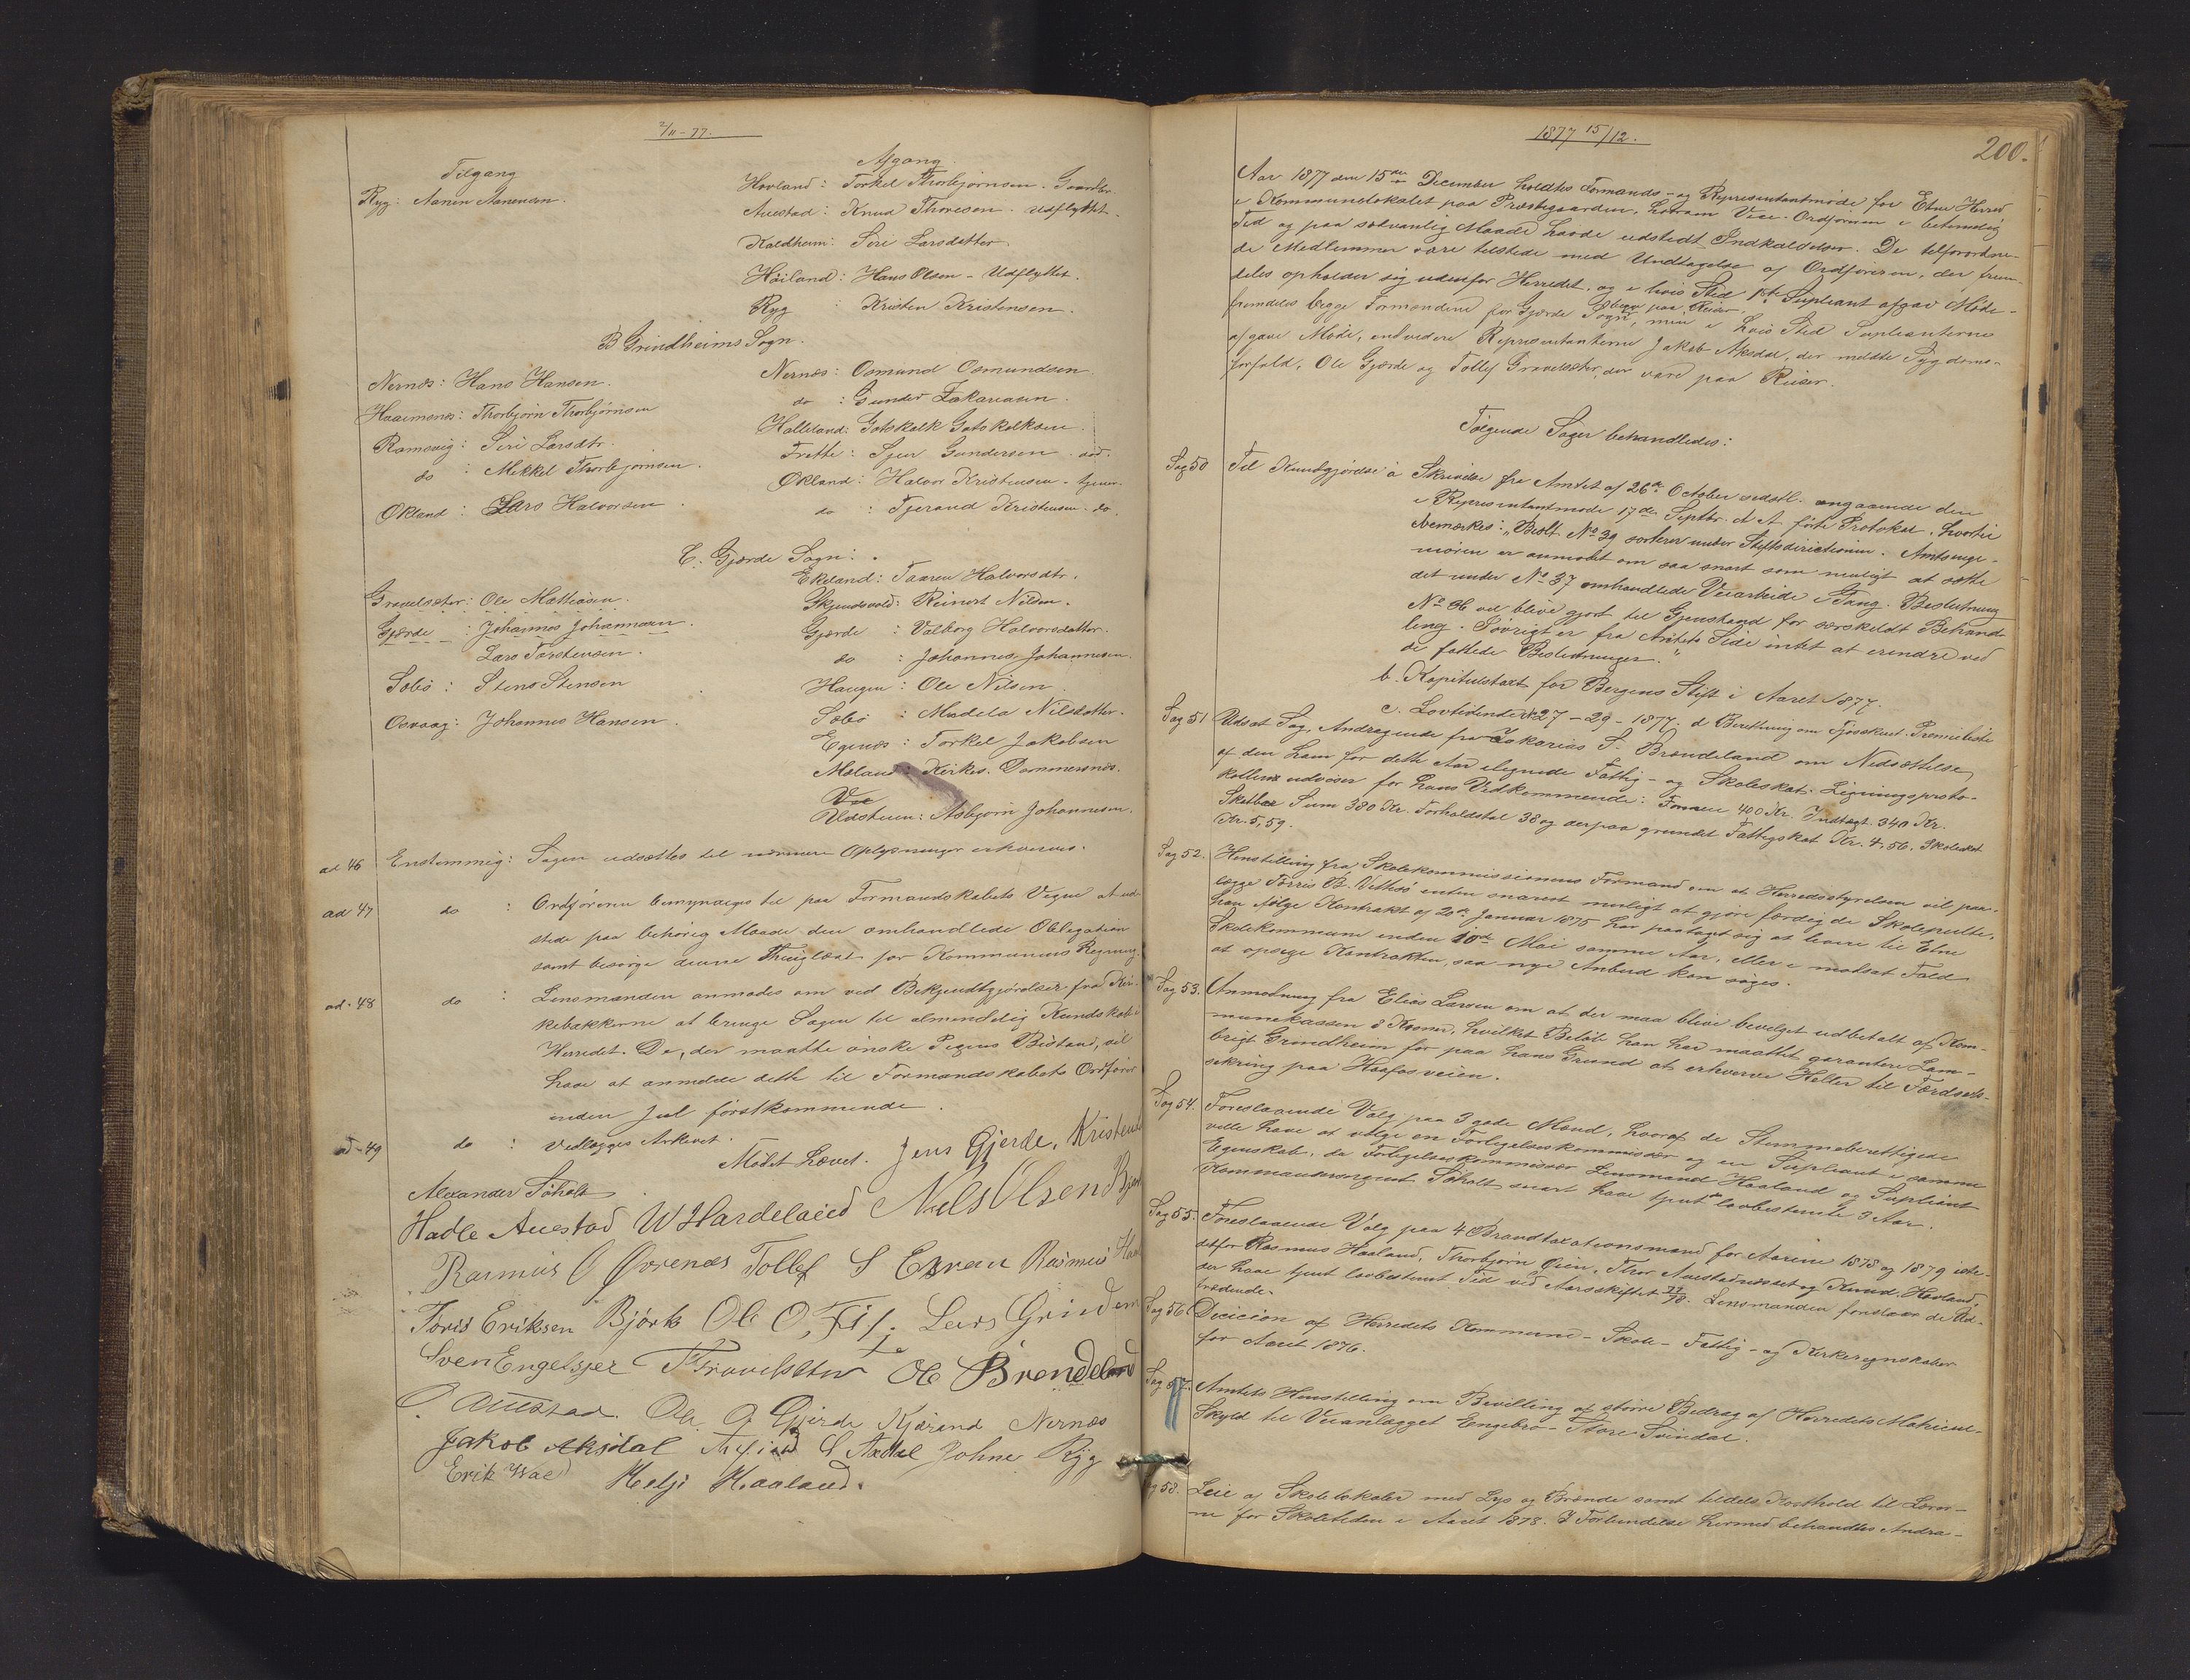 2/11-77.
Tilgang
Afgang.
Ryg: Aanen Aanensen.
Hovland: Torkel Thorbjørnsen. Gaardbr.
Auestad: Knud Thoresen. Udflyttet.
Kaldheim: Siri Larsdatter.
Høiland: Hans Olsen - Udflyttet.
Ryg : Kristen Kristensen.
B Grindheims Sogn.
Nernæs: Hans Hansen.
Nernæs: Osmund Osmundsen
Haaimenes: Thorbjørn Thorbjørnsen
do : Gunder Zakariasen.
Ramsvig: Siri Larsdtr.
Halleland: Gotskalk Gotskalksen.
do : Mikkel Thorbjørnsen.
Frette: Sjur Gundersen.
Økland: Lars Halvorsen
Økland: Halvor Kristensen - tjener.
do : Tjerand Kristensen - do.
C. Gjærde Sogn:
Ekeland: Taaren Halvorsdtr.
Gravelsæter: Ole Mathiasen.
Skjendsvold: Reinert Nilsen.
Gjærde : Johannes Johannesen.
Gjerde : Valborg Halvorsdatter.
Lars Torstensen.
do : Johannes Johannesen.
Sæbø : Stens Stensen
Haugen : Ole Nilsen
Osvaag: Johannes Hansen.
Sæbø : Madela Nilsdatter.
Egenæs : Torkel Jakobsen
Mæland: Kirkes. Dommersnæs.
Vee
Udstuen: Asbjørn Johannesen.
ad 46 Enstemmig: Sagen udsættes til nærmere Oplysninger erhverves.
ad 47 do : Ordføreren bemyndiges til paa Formandskabets Vegne at ud-
stede paa behørig Maade den omhandlede Obligation
samt besørge denne Thinglæst for Kommunens Regning.
ad. 48 do : Lensmanden anmodes om ved Bekjendtgjørelser fra Kir-
kebakkerne at bringe Sagen til almindelig Kundskab i
Herredet. De, der maatte ønske Pigens Bistand, vil
have at anmelde dette til Formandskabets Ordfører
inden Jul førstkommende.
ad-49 do : Vedlægges Arkivet.
Mødet hævet. Jens Gjerde, Kristen
Alexander Tøholt
Hadle Auestad W Hardeland Nils Olsen
Rasmus O Øvrenæs Tollef S Rasmus
Toris Eriksen Bjørk Ole O, Lars Grind
Sven Engelsjer T Gravelsæter Ole Brendeland
O. Auestad. Ole O Gjerde Kjærand Nernæs
Jakob Aksdal Johne Ryg
Erik Helje Haaland.
1877 15/12.
200.
Aar 1877 den 15de December holdtes Formands- og Representantmøde for Etne Herred
i Kommunelokalet paa Præstegaarden, hvoram Vice-Ordføreren i betimelig
Tid og paa sedvanlig Maade havde udstedt Indkaldelser. De tilforordne-
de Medlemmer vare tilstede med Undtagelse af Ordføreren, der frem-
deles opholder sig udenfor Herredet, og i hvis Sted 1ste Supleant afgav Møde -
fremdeles begge Formændene for Gjærde Sogn, begge paa Reiser, men i hvis Sted Supleanterne
afgave Møde, endvidere Representanterne Jakob Aksdal, der meldte Sygdoms-
forfald, Ole Gjærde og Tollef Gravelsæter, der vare paa Reiser.
Følgende Sager behandledes:
Sag 50 Til Kundgjørelse: a Skrivelse fra Amtet af 26de October sidstl. angaaende den
i Representantmøde 17de Septbr. d. A. førte Protokol, hvortil
bemærkes: "Beslt. No 39 sorterer under Stiftsdirectionen. Amtsinge-
niøren er anmodet om saa snart som muligt at sætte
det under No 37 omhandlede Veiarbeide i Gang. Beslutning
No 36 vil blive gjort til Gjenstand for særskildt Behand-
ling. Iøvrigt er fra Amtets Side intet at erindre ved
de fattede Beslutninger."
b. Kapitelstaxt for Bergens Stift i Aaret 1877.
c. Lovtidende No 27 - 29 - 1877. d Beretning om Fjøsskurt. Premieliste
Sag 51 Udsat Sag, Andragende fra Zakarias S. Brændeland om Nedsættelse
af den ham for dette Aar ilignede Fattig- og Skoleskat. Ligningsproto-
kollen udviser for hans Vedkommende: Formue 400 Kr. Indtægt 340 Kr.
Skatbar Sum 380 Kr. Forholdstal 38 og derpaa grundet Fattigskat Kr. 4,56. Skoleskat
Kr. 5,59.
Sag 52. Henstilling fra Skolekommissionens Formand om at Herredsstyrelsen vil paa-
lægge Torris B. Vethsø enten snarest muligt at gjøre færdig de Skolepulte,
han ifølge Kontrakt af 20de Januar 1875 har paataget sig at levere til Etne
Skolekommune inden 10de Mai samme Aar, eller i modsat Fald
at opsige Kontrakten, saa nye Anbud kan søges.
Sag 53. Anmodning fra Elias Larsen om at der maa blive bevilget udbetalt af Kom-
munekassen 8 Kroner, hvilket Beløb han har maattet garantere Lam-
brigt Grindheim for paa hans Grund at erhverve Heller til Færdsels-
sikring paa Haafosveien.
Sag 54. Foreslaaende Valg paa 3 gode Mænd, hvoraf de Stemmeberettigede
ville have at vælge en Forligelseskommissær og en Supleant i samme
Egenskab, da Forligelseskommissær Lensmand Haaland og Supleant
Kommandersergent Tøholt snart have tjent i lovbestemte 3 Aar.
Sag 55. Foreslaaende Valg paa 4 Brandtaxationsmænd for Aarene 1878 og 1879 iste-
detfor Rasmus Haaland, Thorbjørn Øien, Thor Auestadnæsset og Knud Hovland,
der have tjent lovbestemt Tid ved Aarsskiftet 77/78. Lensmanden foreslaar de Ud-
trædende.
Sag 56 Decicion af Herredets Kommune- Skole- Fattig- og Kirkeregnskaber
for Aaret 1876.
Sag 57. Amtets Henstilling om Bevilling af større Bidrag af Herredets Matricul-
Skyld til Veianlægget Engebro - Store Svindal.
Sag 58. Leie af Skolelokaler med Lys og Brænde samt tildels Kosthold til Lærer-
ne for Skoletiden i Aaret 1878. I Forbindelse hermed behandles Andra-